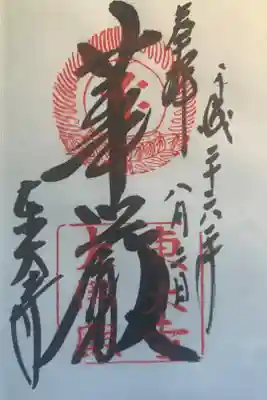 平成二十六年
八月六日
奉拝
華厳
東大寺